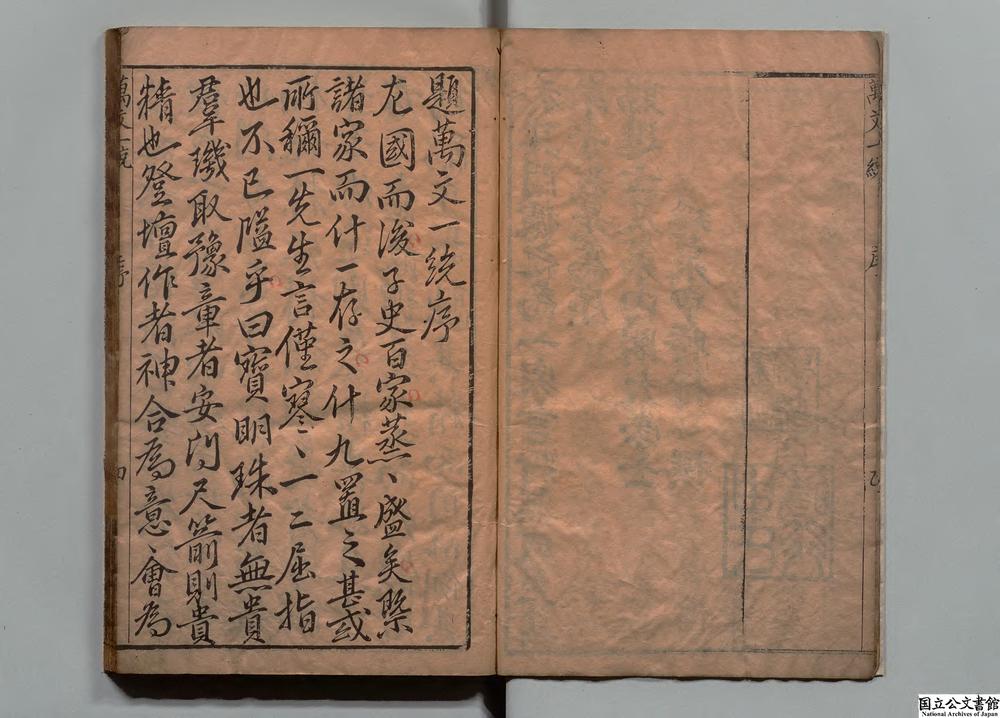 題萬文一統序
左國而後子史百家蒸〻盛矣槩
諸家而什一存之什九置之甚或
所稱一先生言僅寥〻一二屈指
也不已隘乎曰寶明珠者無貴
羣璣取豫章者安問尺箭則貴
精也登壇作者神合為意會為
萬文一統
序
四
萬文一統
序
国立公文書館
National Archives of Japan